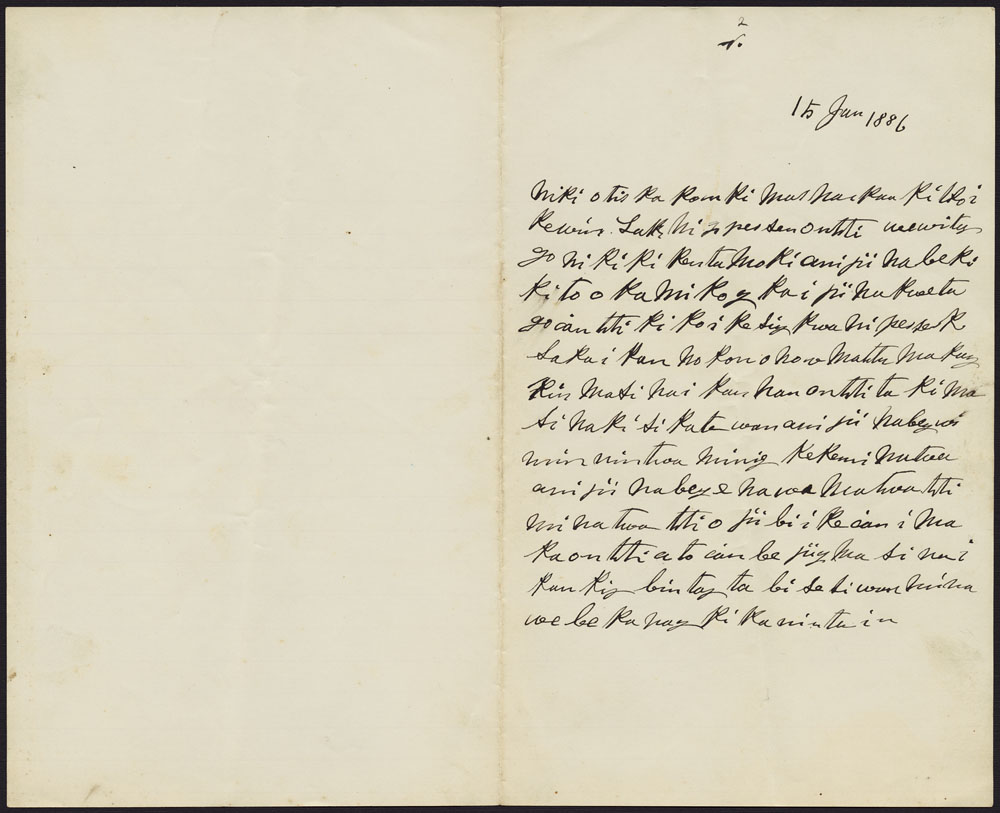 2
15 Jan 1886
niki otis ka kom ki mas nai kan ki tsoi
ke win. Sak ni g pes sen on tti we wi ty
go ni ki ki ken ta mo ki ani jii na be ki
ki to o ka mi ko g ka i jii na kwe ta
go ian tti ki ko i ke sig kwa ni pes se k
sa ka i kan no kon o no w ma ttu ma kag
kin ma si nai kan nan on tti ta ki ma
si na ki si kate wan ani jii na beg wi
win win twa minig ke ke mi na twa
ani jii na beg e na wa ma twa tti
mi na twa tti o jii bi i ke ian i ma
ka on tti a to ian be jiig ma si na i
kan kig bin tag ta bi se si wan mi na
we be ka nag ki ka win ta in